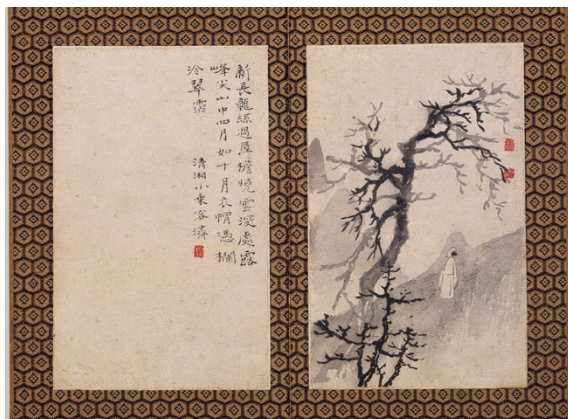 新長龍孫過屋檐曉雲處露
峰尖山中四月如十月衣帽憑欄
冷翠霑 清湘小乘客濟